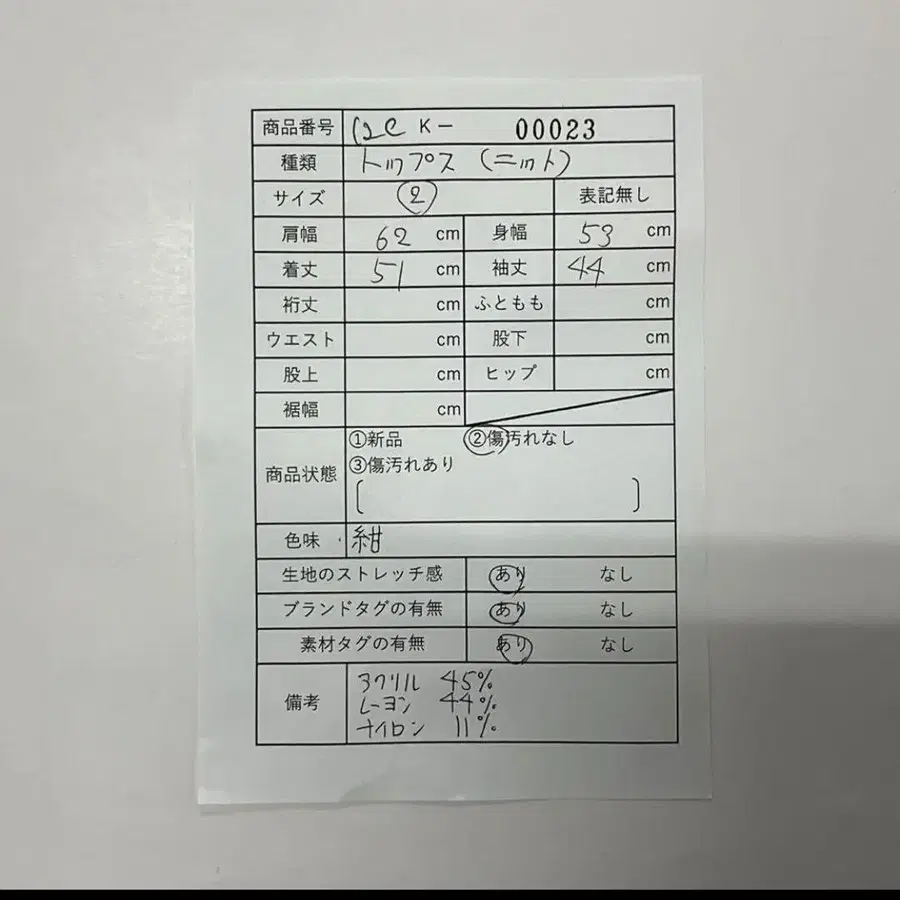 商品番号 K- 00023
種類 トップス (ニット)
サイズ ② 表記無し
肩幅 62 cm 身幅 53 cm
着丈 51 cm 袖丈 44 cm
裄丈 cm ふともも cm
ウエスト cm 股下 cm
股上 cm ヒップ cm
裾幅 cm
①新品 ②傷汚れなし
商品状態 ③傷汚れあり
[ ]
色味 紺
生地のストレッチ感 あり なし
ブランドタグの有無 あり なし
素材タグの有無 あり なし
アクリル 45%
備考 レーヨン 44%
ナイロン 11%